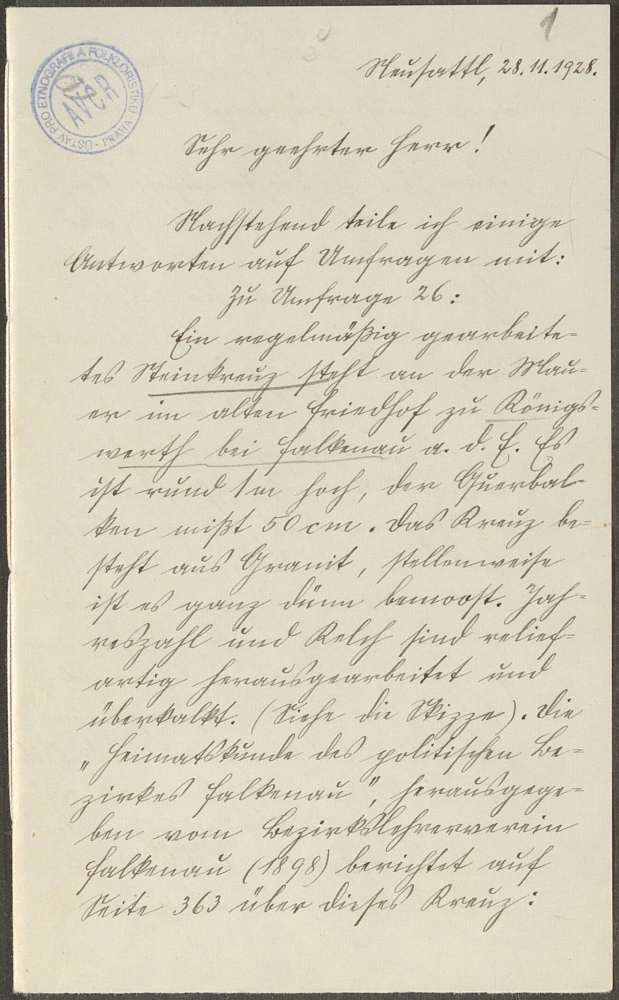 1
ÚSTAV PRO ETNOGRAFII A FOLKLORISTIKU · PRAHA ·
ČSAV
Neusattl, 28.11.1928.
Sehr geehrter Herr!
Nachstehend teile ich einige
Antworten auf Umfragen mit:
Zu Umfrage 26:
Ein regelmäßig gearbeite=
tes Steinkreuz steht an der Mau=
er im alten Friedhof zu Königs=
werth bei Falkenau a. d. E. Es
ist rund 1m hoch, der Querbal-
ken mißt 50 cm. Das Kreuz be=
steht aus Granit, stellenweise
ist es ganz dünn bemoost. Jah=
reszahl und Kelch sind relief=
artig herausgearbeitet und
überkalkt. (Siehe die Skizze). Die
„Heimatskunde des politischen Be=
zirkes Falkenau", herausgege=
ben vom Bezirkslehrerverein
Falkenau (1898) berichtet auf
Seite 363 über dieses Kreuz: